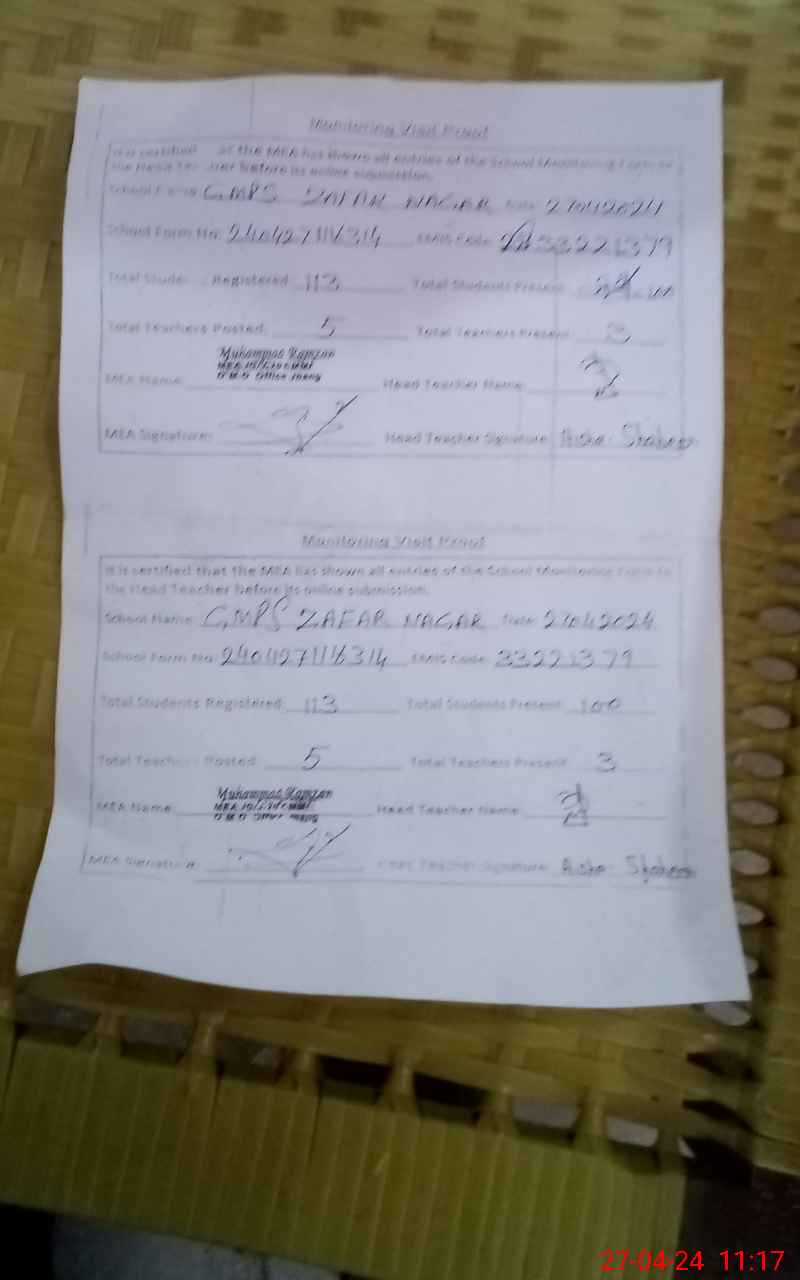 Monitoring Visit Proof
It is certified at the MEA has shown all entries of the School Monitoring Form to
the Head Teacher before its online submission.
School Name GMPS ZAFAR NAGAR Date 27042024
School Form No: 240427116314 EMIS Code 33221379
Total Students Registered 113 Total Students Present 100
Total Teachers Posted: 5 Total Teachers Present 3
MEA Name: Muhammad Ramzan Head Teacher Name
D M O Office Jhang
MEA Signature: Head Teacher Signature Aisha Shaheen
Monitoring Visit Proof
It is certified that the MEA has shown all entries of the School Monitoring Form to
the Head Teacher before its online submission.
School Name GMPS ZAFAR NAGAR Date 27042024
School Form No 240427116314 EMIS Code 33221379
Total Students Registered 113 Total Students Present 100
Total Teachers Posted: 5 Total Teachers Present 3
MEA Name: Muhammad Ramzan Head Teacher Name
D M O Office Jhang
MEA Signature: Head Teacher Signature Aisha Shaheen
27-04-24 11:17